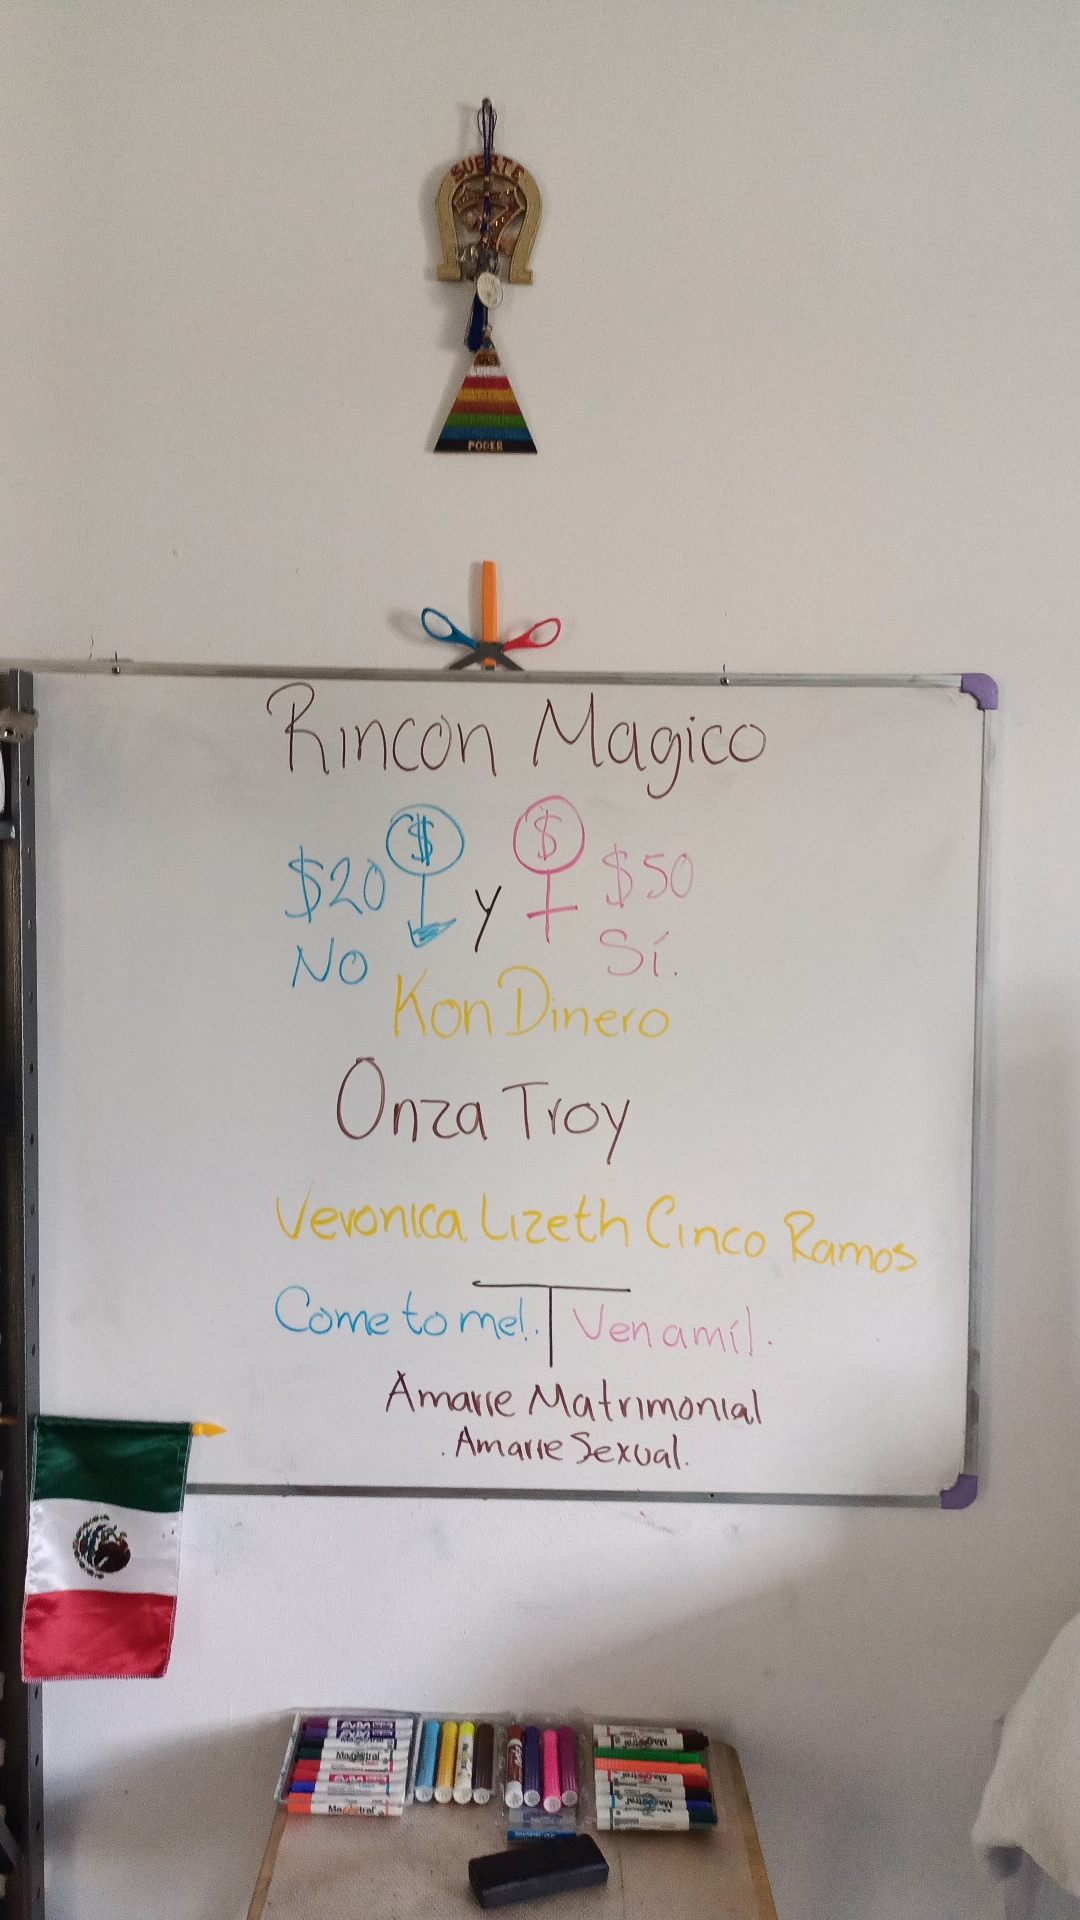 SUERTE
PODER
Rincon Magico
$ $
$20 y $50
No Sí.
Kon Dinero
Onza Troy
Veronica Lizeth Cinco Ramos
Come to me!. Ven a mí!.
Amarre Matrimonial
. Amarre Sexual.
Magistral
Magistral
Magistral
Magistral
Magistral